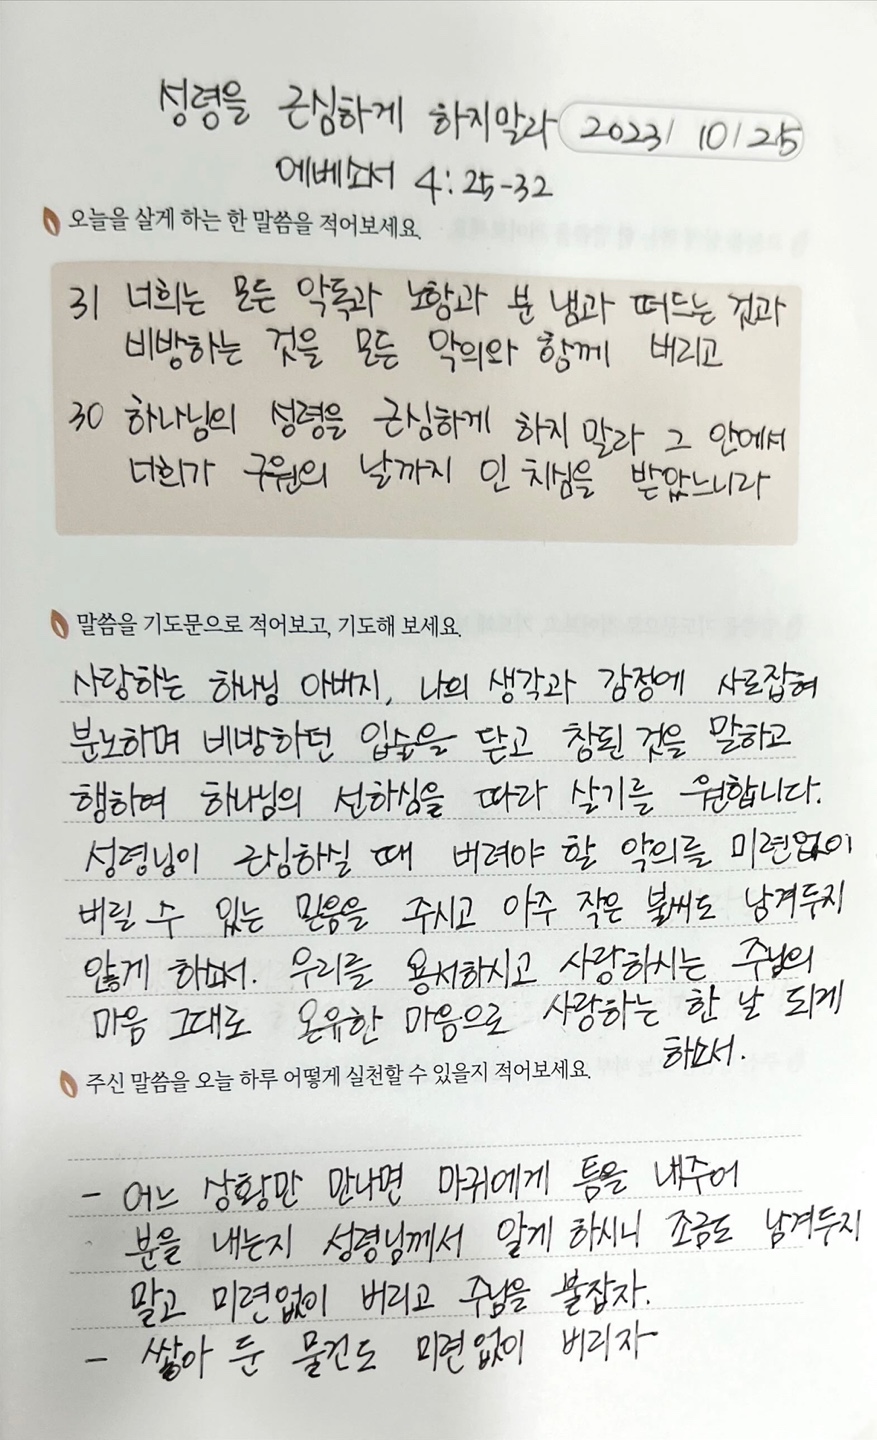 성령을 근심하게 하지말라 2023/ 10/25
에베소서 4:25-32
오늘을 살게 하는 한 말씀을 적어보세요.
31 너희는 모든 악독과 노함과 분 냄과 떠드는 것과
비방하는 것을 모든 악의와 함께 버리고
30 하나님의 성령을 근심하게 하지 말라 그 안에서
너희가 구원의 날까지 인 치심을 받았느니라
말씀을 기도문으로 적어보고, 기도해 보세요.
사랑하는 하나님 아버지, 나의 생각과 감정에 사로잡혀
분노하며 비방하던 입술을 닫고 참된 것을 말하고
행하여 하나님의 선하심을 따라 살기를 원합니다.
성령님이 근심하실 때 버려야 할 악의를 미련없이
버릴 수 있는 믿음을 주시고 아주 작은 불씨도 남겨두지
않게 하소서. 우리를 용서하시고 사랑하시는 주님의
마음 그대로 온유한 마음으로 사랑하는 한 날 되게
하소서.
주신 말씀을 오늘 하루 어떻게 실천할 수 있을지 적어보세요.
- 어느 상황만 만나면 마귀에게 틈을 내주어
분을 내는지 성령님께서 알게 하시니 조금도 남겨두지
말고 미련없이 버리고 주님을 붙잡자.
- 쌓아 둔 물건도 미련없이 버리자